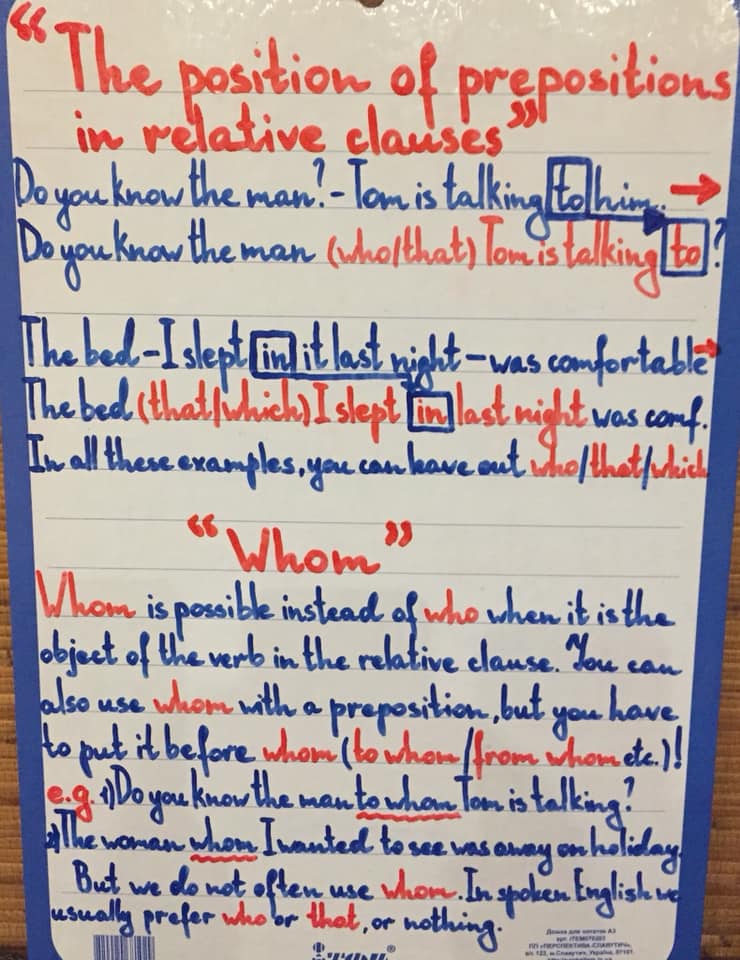 “The position of prepositions
in relative clauses”
Do you know the man? - Tom is talking to him. →
Do you know the man (who/that) Tom is talking to?
The bed - I slept in it last night - was comfortable →
The bed (that/which) I slept in last night was comf.
In all these examples, you can leave out who/that/which
“Whom”
Whom is possible instead of who when it is the
object of the verb in the relative clause. You can
also use whom with a preposition, but you have
to put it before whom (to whom/from whom etc.)!
e.g. 1) Do you know the man to whom Tom is talking?
2) The woman whom I wanted to see was away on holiday.
But we do not often use whom. In spoken English we
usually prefer who or that, or nothing.
Дошка для нотаток А3
ПП «ПЕРСПЕКТИВА-СЛАВУТИЧ»,
м.Славутич, Україна, 07101